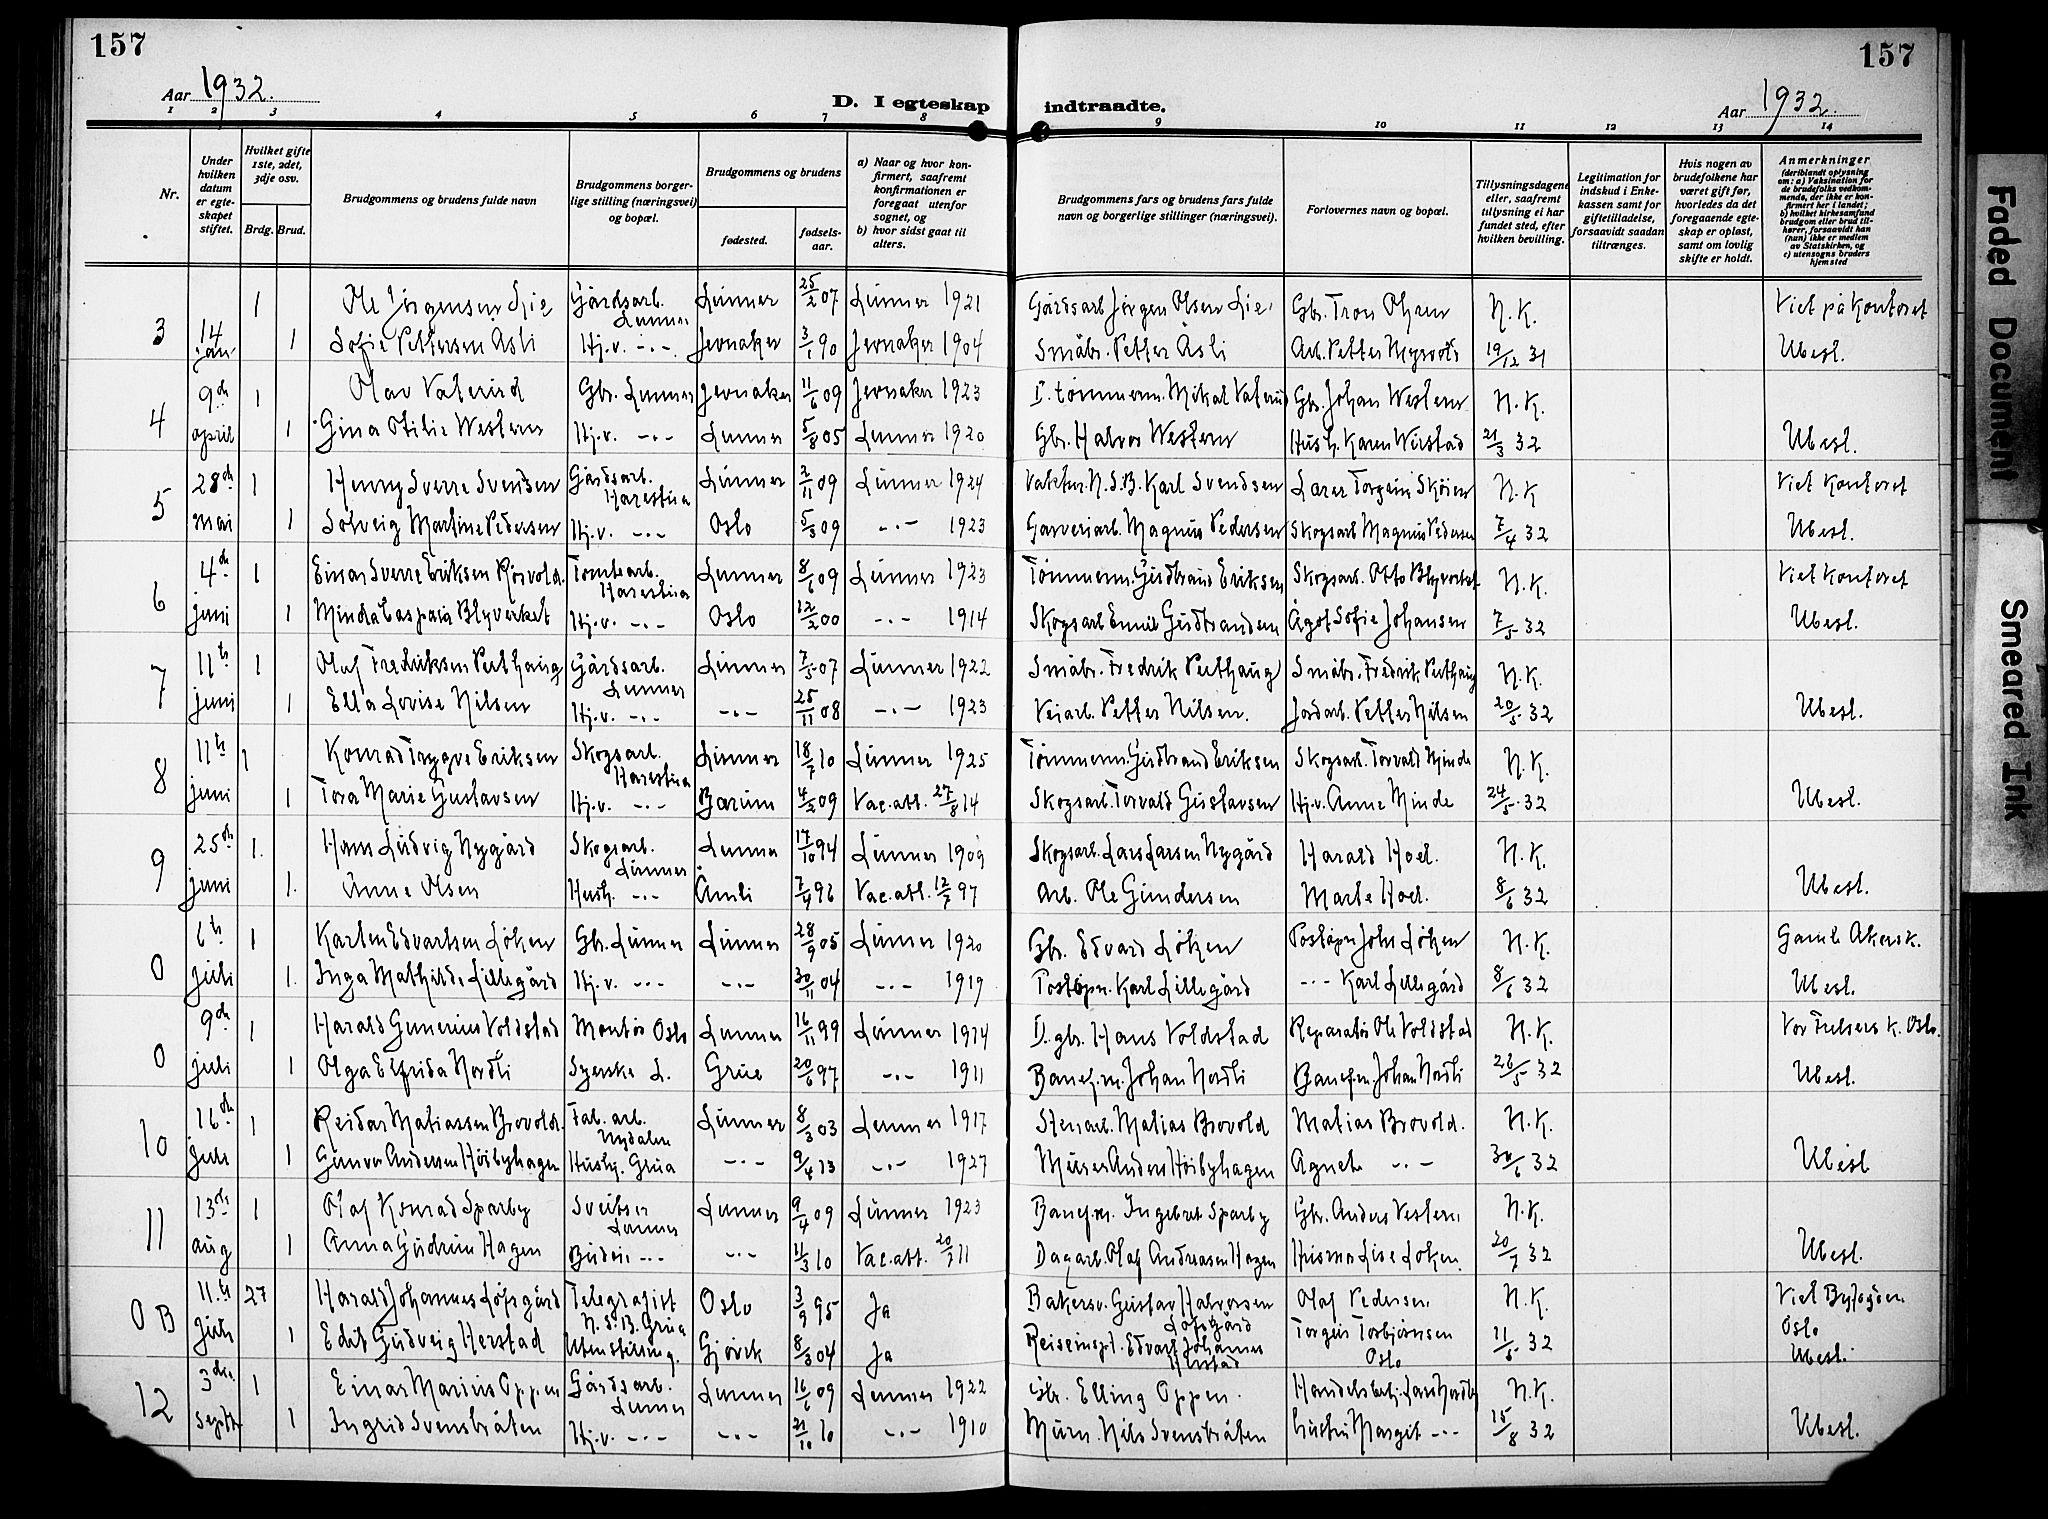 157
157
Aar 1932.
D. I egteskap indtraadte.
Aar 1932.
1 2 3 4 5 6 7 8 9 10 11 12 13 14
Nr.
Under hvilken datum er egteskapet stiftet.
Hvilket gifte 1ste, 2det, 3dje osv.
Brdg. Brud.
Brudgommens og brudens fulde navn
Brudgommens borgerlige stilling (næringsvei) og bopæl.
Brudgommens og brudens
fødested.
fødselsaar.
a) Naar og hvor konfirmert, saafremt konfirmationen er foregaat utenfor sognet, og
b) hvor sidst gaat til alters.
Brudgommens fars og brudens fars fulde navn og borgerlige stillinger (næringsvei).
Forlovernes navn og bopæl.
Tillysningsdagene eller, saafremt tillysning ei har fundet sted, efter hvilken bevilling.
Legitimation for indskud i Enkekassen samt for giftetilladelse, forsaavidt saadan tiltrænges.
Hvis nogen av brudefolkene har været gift før, hvorledes da det foregaaende egteskap er opløst, samt om lovlig skifte er holdt.
Anmerkninger (deriblandt oplysning om: a) Vaksination for de brudefolks vedkommende, der ikke er konfirmert her i landet; b) hvilket kirkesamfund brudgom eller brud tilhører, forsaavidt han (hun) ikke er medlem av Statskirken, og c) utensogns bruders hjemsted
3 14 jan 1 Ole Jörgensen Lie Gårdsarb. Lunner Lunner 25/2 07 Lunner 1921 Gårdsarb Jörgen Olsen Lie Gbr. Tron N.K. Viet på Kontoret
1 Sofie Pettersen Åsli Hj.v. -.- Jevnaker 3/1 90 Jevnaker 1904 Småbr. Petter Åsli Arb. Petter 19/12 31 Ubesl.
4 9de april 1 Olav Vaterud Gbr. Lunner Jevnaker 11/6 09 Jevnaker 1923 D. tømmerm. Mikal Vaterud Gbr. Johan Western N.K.
1 Gina Otilie Western Hj.v. -.- Lunner 5/8 05 Lunner 1920 Gbr. Halvor Western Hush. Karen 21/3 32 Ubesl.
5 28de mai 1 Henny Sverre Svendsen Gårdsarb. Harestua Lunner 2/11 09 Lunner 1924 N.S.B. Karl Svendsen Lærer Torgeir Skøien N.K. Viet Kontoret
1 Solveig Martine Pedersen Hj.v. -.- Oslo 5/3 09 -.- 1923 Garveriarb. Magnus Pedersen Skogsarb Magnus Pedersen 7/4 32 Ubesl.
6 4de juni 1 Einar Sverre Eriksen Rösvold. Tomtearb. Harestua Lunner 8/6 09 Lunner 1923 Tömmerm. Gudbrand Eriksen Skogsarb. Otto Blyverket N.K. Viet Kontoret
1 Minda Caspara Blyverket Hj.v. -.- Oslo 12/2 00 -.- 1914 Skogsarb Emil Gudbrandsen Ågot Sofie Johansen 7/5 32 Ubesl.
7 11te juni 1 Olaf Fredriksen Puthaug Gårdsarb. Lunner Lunner 7/5 07 Lunner 1922 Småbr. Fredrik Puthaug Småbr. Fredrik Puthaug N.K.
1 Ella Lovise Nilsen Hj.v. -.- -.- 25/11 08 -.- 1923 Veiarb. Petter Nilsen. Jordarb. Petter Nilsen 20/5 32 Ubesl.
8 11te juni 1 Konrad Trygve Eriksen Skogsarb. Harestua Lunner 18/7 10 Lunner 1925 Tömmerm. Gudbrand Eriksen Skogsarb. Torvald Minde N.K.
1 Tora Marie Gustavsen Hj.v. -.- Bærum 4/2 09 Vac.att. 27/8 14 Skogsarb. Torvald Gustavsen Hj.v. Anne Minde 24/5 32 Ubesl.
9 25de juni 1. Hans Ludvig Nygård Skogsarb. Lunner Lunner 17/10 94 Lunner 1909 Skogsarb. Lars Larsen Nygård Harald Hoel. N.K.
1. Anne Olsen Hush. -.- Åmli 7/4 96 Vac.att. 12/7 97 Arb. Ole Gundersen Marte Hoel. 8/6 32 Ubesl.
0 6te juli 1 Karsten Edvartsen Löken Gbr. Lunner Lunner 28/9 05 Lunner 1920 Gbr. Edvard Löken Postöpn John Löken N.K. Gamle Akersk.
1. Inga Mathilde Lillegård Hj.v. -.- -.- 30/11 04 -.- 1919 Postöpn. Karl Lillegård -.- Karl Lillegård 8/6 32 Ubesl.
0 9de juli 1 Harald Gunerius Voldstad Montør Oslo Lunner 16/11 99 Lunner 1914 D. gbr. Hans Voldstad Reparatør Ole Voldstad N.K. Vor Frelsers K. Oslo.
1 Olga Elfrida Nordli Syerske L. Grue 20/6 97 -.- 1911 Banef.m. Johan Nordli Banefm. Johan Nordli 26/5 32 Ubesl.
10 16de juli 1 Reidar Matiassen Brovold. Fab. arb. Nydalen Lunner 8/3 03 Lunner 1917 Stenarb. Matias Brovold Matias Brovold. N.K.
1 Gunvor Andersen Höibyhagen Hush. Grua -.- 9/4 13 -.- 1927 Murer Anders Höibyhagen Agnete -.- 30/6 32 Ubesl
11 13de aug 1 Olaf Konrad Sparby Sveitser Lunner Lunner 9/4 09 Lunner 1923 Banef.m. Ingebret Sparby Gbr. Anders Vestern N.K.
1 Anna Gudrun Hagen Budeie -.- -.- 11/3 10 Vac.att. 20/7 11 Dagarb. Olaf Andreasen Hagen Husmo Lise Løken. 20/7 32 Ubesl.
0 B 11.te Juli 27 Harald Johannes Löfsgård Telegrafist N.S.B. Grua Oslo 3/9 95 Ja Bakersv. Gustav Halvorsen Löfsgård Olaf Pedersen N.K. Viet Byfogden Oslo
1 Edit Gudveig Herstad Uten stilling. Gjövik 8/3 04 Ja Reiseinspt. Edvart Johannes Herstad Torgeir Torbjörnsen Oslo 11/6 32 Ubesl.
12 3die septbr 1 Einar Marius Oppen Gårdsarb. Lunner Lunner 16/6 09 Lunner 1922 Gbr. Elling Oppen. Handelsbetj. Lars Nordby N.K.
1 Ingrid Svensbråten Hj.v. -.- -.- 21/10 10 -.- 1910 Murm. Nils Svensbråten Margit -.- 15/8 32 Ubesl.
Faded Document
Smeared Ink